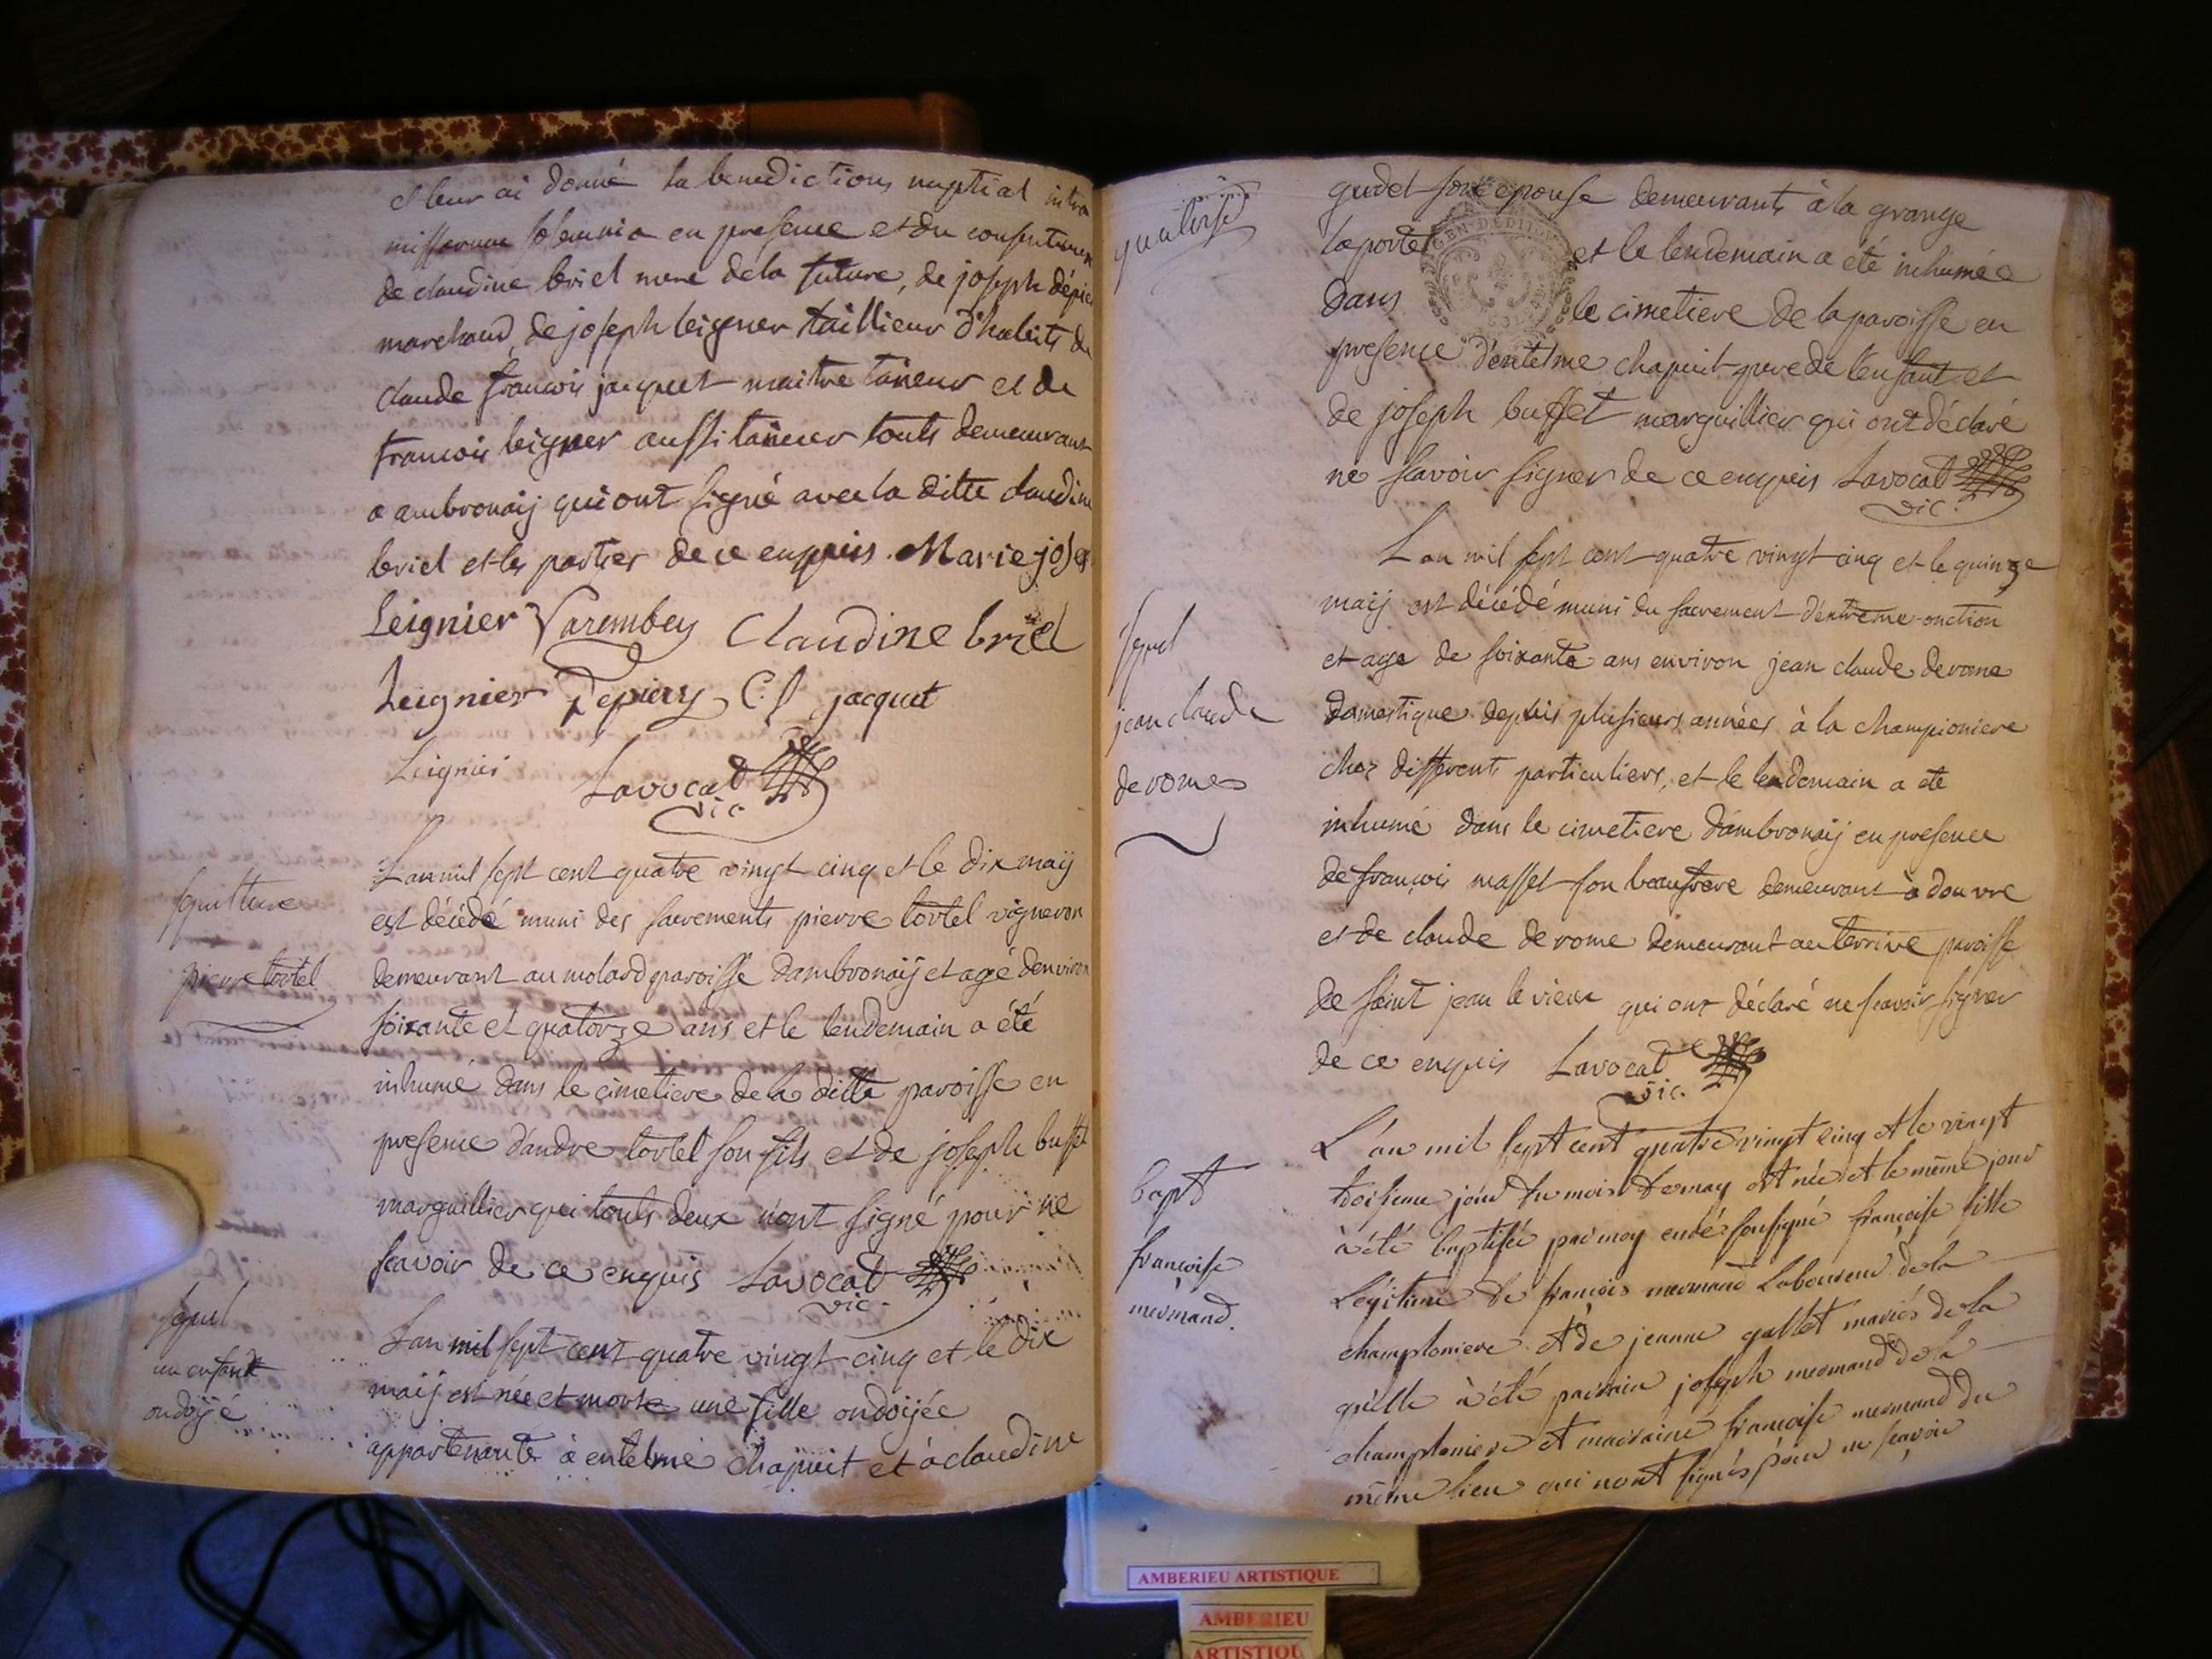 et leur ai donné la benediction nuptial intra
missarum solemnia en presence et du consentemen
de claudine briel mere dela future, de joseph dépie
marchand, de joseph leigner taillieur d'habits de
claude francois jacquet maitre taneur et de
francois leigner aussi taneur touts demeurant
a ambronaij qui ont signé avec la ditte claudine
briel et les parties de ce enquis. Marie jose
Leignier Varembey Claudine briel
Leignier Depiery C. f jacquet
Leignier Lavocat
vic.
sepulture
pierre tortel
L'an mil sept cent quatre vingt cinq et le dix maij
est décédé muni des sacrements pierre tortel vigneron
demeurant au molard paroisse dambronaij et agé denviron
soixante et quatorze ans et le lendemain a été
inhumé dans le cimetiere de la ditte paroisse en
presence d'andre tortel son fils et de joseph buffet
marguillier qui touts deux n'ont signé pour ne
scavoir de ce enquis Lavocat
vic.
sepul
un enfant
ondoijé
L'an mil sept cent quatre vingt cinq et le dix
maij est née et morte une fille ondoijée
appartenante à entelme chapuit et à claudine
quatorze
gudet son epouse demeurants à la grange
la porte et le lendemain a été inhumée
GEN. DE DIJON
dans le cimetiere de la paroisse en
presence d'entelme chapuit pere de l'enfant et
de joseph buffet marguillier qui ont déclaré
ne scavoir signer de ce enquis Lavocat
vic.
sepul
jean claude
de rome
L'an mil sept cent quatre vingt cinq et le quinze
maij est décédé muni du sacrement d'extreme-onction
et age de soixante ans environ jean claude de rome
domestique depuis plusieurs années à la championiere
chez differents particuliers, et le lendemain a eté
inhumé dans le cimetiere d'ambronaij en presence
de françois masset son beaufrere demeurant à douvre
et de claude de rome demeurant au terrive paroisse
de saint jean le vieux qui ont déclaré ne scavoir signer
de ce enquis Lavocat
vic.
bapt
francoise
mermand.
L'an mil sept cent quatre vingt cinq et le vingt
troisieme jour du mois de may est née et le même jour
à été baptisée par moy curé soussigné françoise fille
Légitime de françois mermand Laboureur de la
championiere et de jeanne gallet mariés de la
qu'elle à été parrain joseph mermand de la
championiere et marraine françoise mermand du
même lieu qui n'ont signés pour ne scavoir
AMBERIEU ARTISTIQUE
AMBERIEU
ARTISTIQU